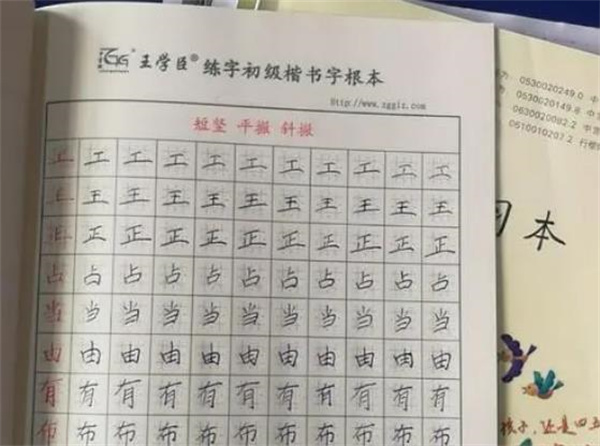 王学臣® 练字初级楷书字根本
Http://www.zggiz.com
短竖 平撇 斜撇
工 工 工 工 工 工 工 工 工 工 工
王 王 王 王 王 王 王 王 王 王 王
正 正 正 正 正 正 正 正 正 正 正
占 占 占 占 占 占 占 占 占 占 占
当 当 当 当 当 当 当 当 当 当 当
由 由 由 由 由 由 由 由 由 由 由
有 有 有 有 有 有 有 有 有 有 有
布 布 布 布 布 布 布 布 布 布 布
0530020249.0 中
0530020149.8 中
0630020092.2 中宫
0610010207.2 行楷
本
孩子,